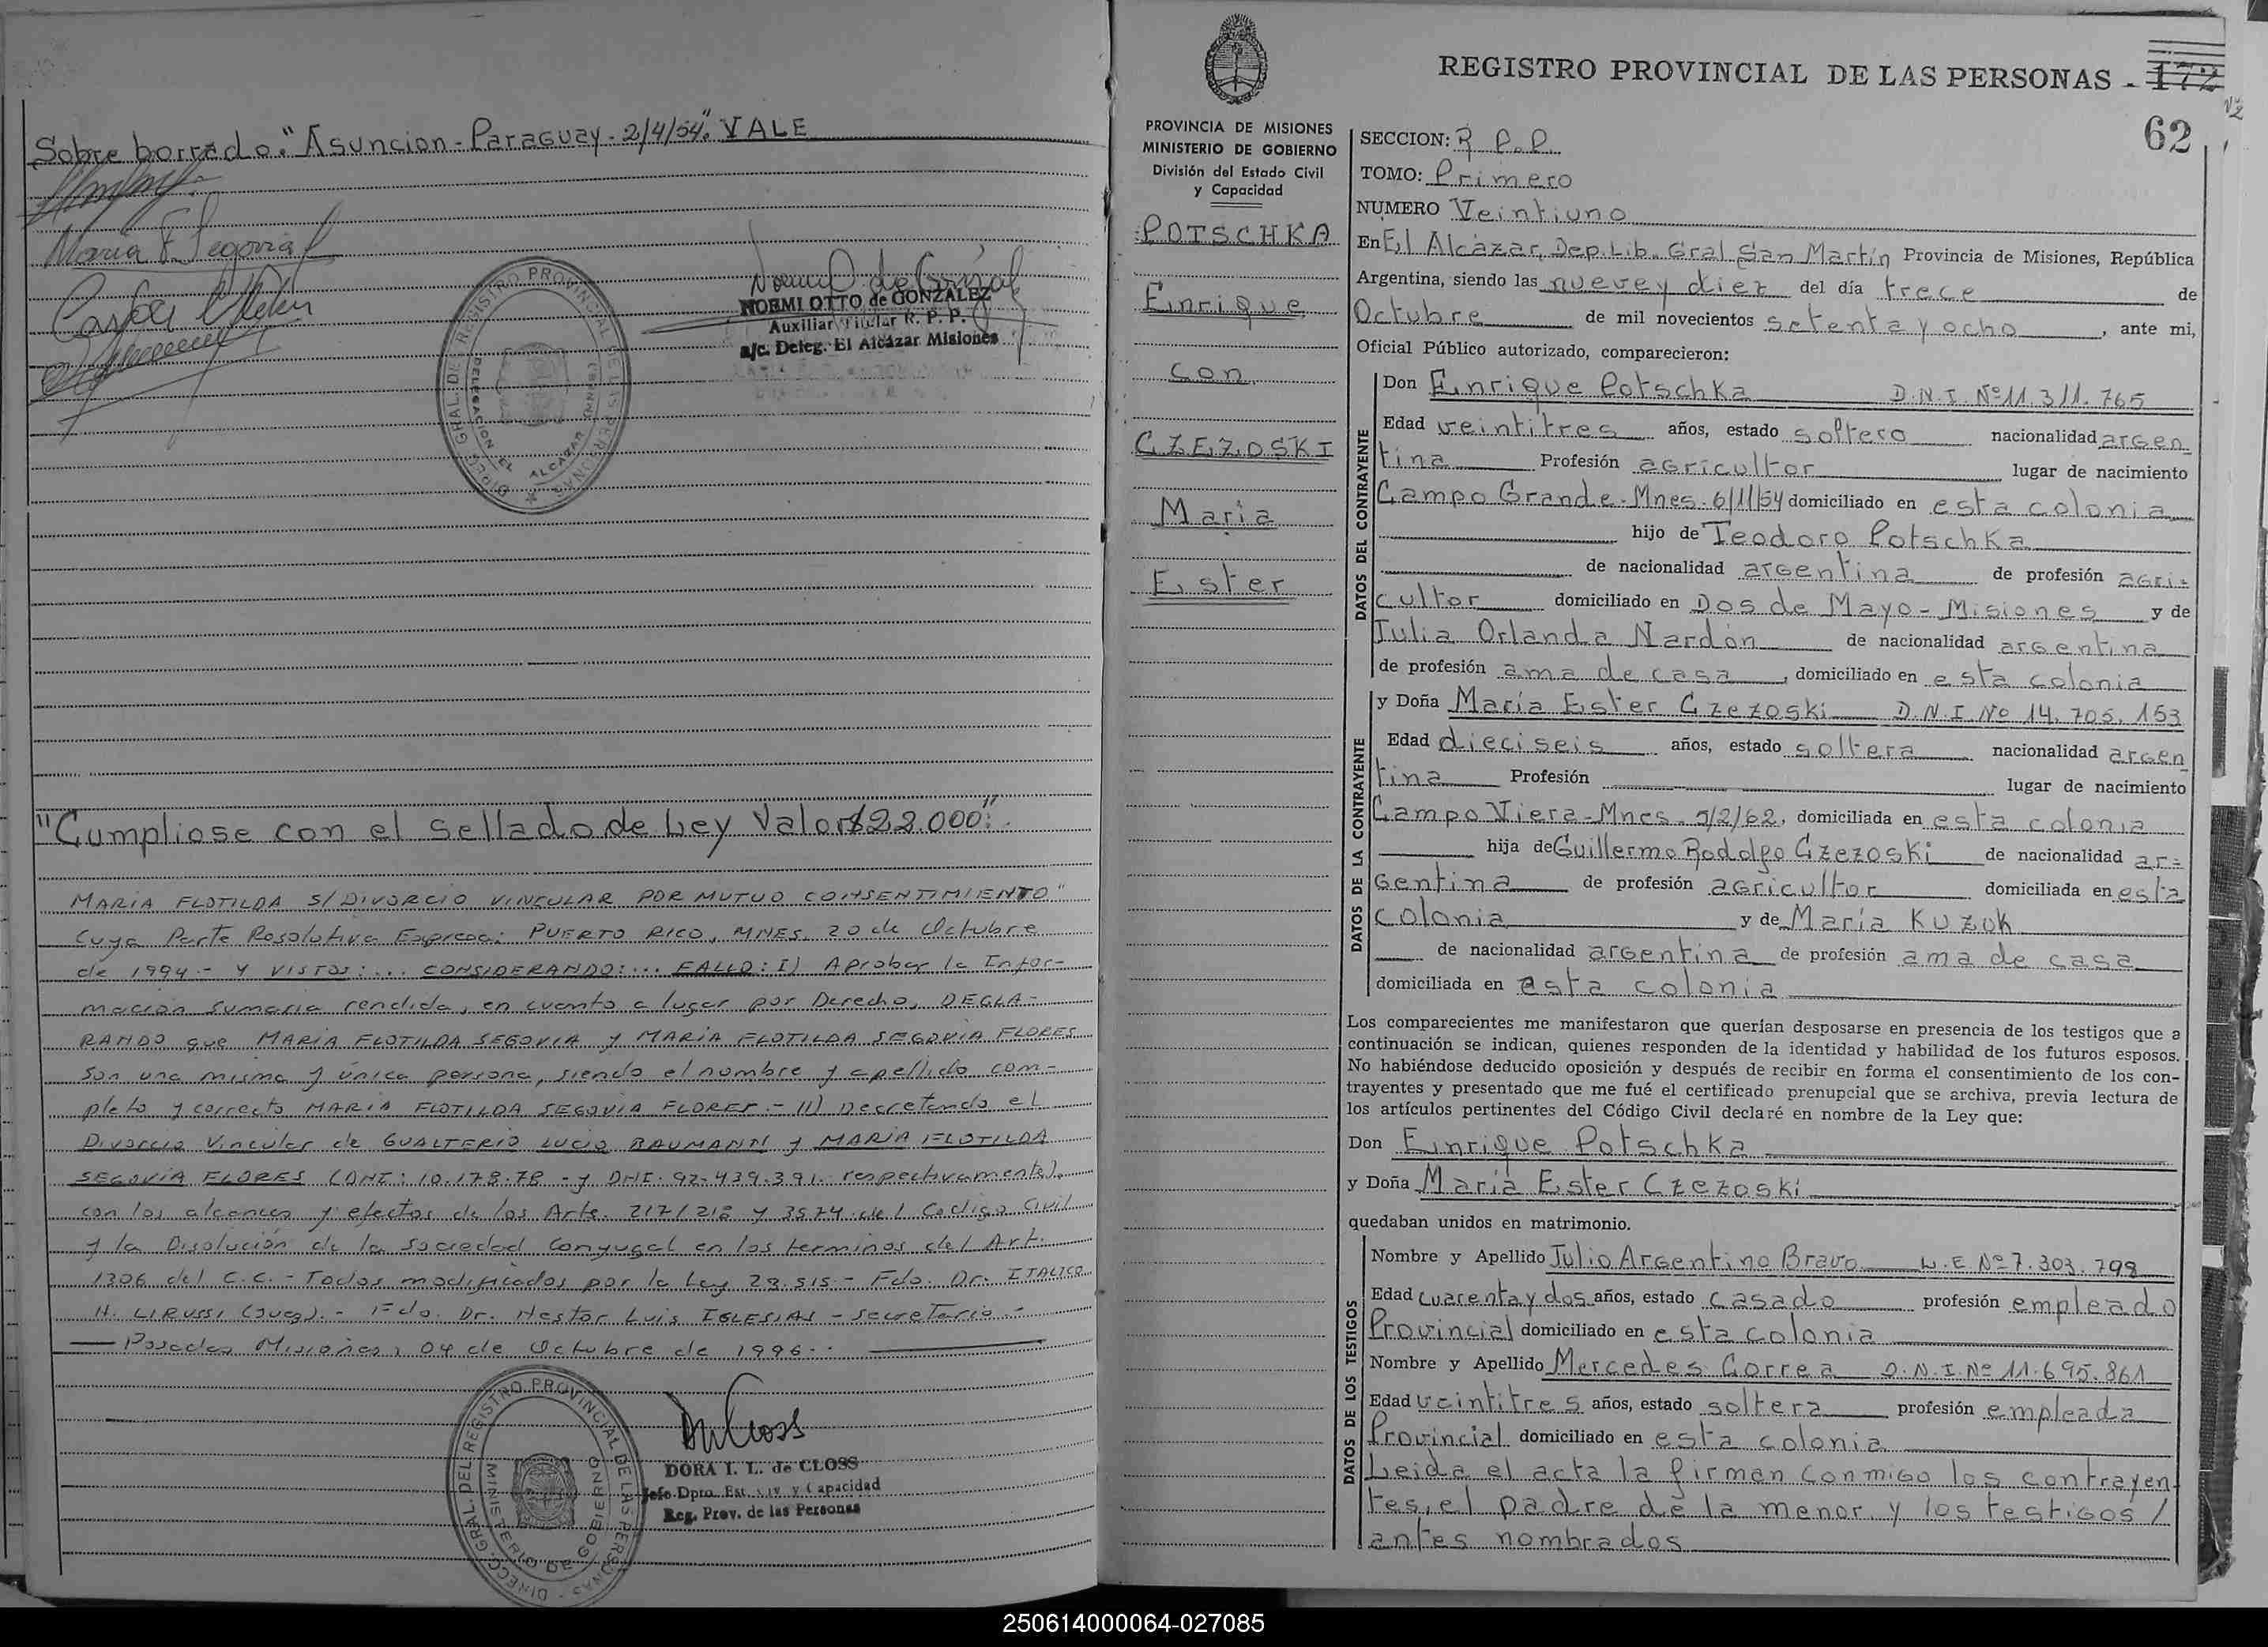 Sobre borrado: "Asuncion - Paraguay - 2/4/54". VALE
Maria F. Segovia F
NOEMI OTTO de GONZALEZ
Auxiliar Titular R. P. P.
a/c. Deleg. El Alcázar Misiones
DIREC. GRAL. DEL REGISTRO PROVINCIAL DE LAS PERSONAS
DELEGACION EL ALCAZAR
"Cumpliose con el sellado de Ley Valor $22.000".
MARIA FLOTILDA S/ DIVORCIO VINCULAR POR MUTUO CONSENTIMIENTO"
Cuya Parte Resolutiva Expresa: PUERTO RICO, MNES. 20 de Octubre
de 1994.- Y VISTOS: ... CONSIDERANDO: ... FALLO: I) Aprobar la Infor-
mación Sumaria rendida, en cuanto a lugar por Derecho, DECLA-
RANDO que MARIA FLOTILDA SEGOVIA y MARIA FLOTILDA SEGOVIA FLORES
son una misma y única persona, siendo el nombre y apellido com-
pleto y correcto MARIA FLOTILDA SEGOVIA FLORES.- II) Decretando el
Divorcio Vincular de GUALTERIO LUCIO BAUMANN y MARIA FLOTILDA
SEGOVIA FLORES (DNI: 10.178.78 - y DNI. 92.439.391. respectivamente).
con los alcances y efectos de los Arts. 217/218 y 3574 del Codigo Civil
y la Disolución de la Sociedad Conyugal en los terminos del Art.
1306 del C.C. - Todos modificados por la Ley 23.515 - Fdo. Dr. ITALICO
H. LIRUSSI (Juez). - Fdo. Dr. Hestor Luis IGLESIAS - Secretario -
Posadas Misiones, 04 de Octubre de 1996 -
DIRECC. GRAL. DEL REGISTRO PROVINCIAL DE LAS PERSONAS
MINISTERIO DE GOBIERNO
DORA I. L. de CLOSS
Jefe Dpto. Est. Civ. y Capacidad
Reg. Prov. de las Personas
REGISTRO PROVINCIAL DE LAS PERSONAS - 172
62
PROVINCIA DE MISIONES
MINISTERIO DE GOBIERNO
División del Estado Civil
y Capacidad
POTSCHKA
Enrique
con
CZEZOSKI
Maria
Ester
SECCION: R P.P.
TOMO: Primero
NUMERO Veintiuno
En El Alcázar, Dep. Lib. Gral San Martín Provincia de Misiones, República
Argentina, siendo las nueve y diez del día trece de
Octubre de mil novecientos setenta y ocho, ante mi,
Oficial Público autorizado, comparecieron:
DATOS DEL CONTRAYENTE
Don Enrique Potschka D.N.I. Nº 11.311.765
Edad veintitres años, estado soltero nacionalidad argen
tina Profesión agricultor lugar de nacimiento
Campo Grande - Mnes. 6/11/54 domiciliado en esta colonia
hijo de Teodoro Potschka
de nacionalidad argentina de profesión agri-
cultor domiciliado en Dos de Mayo - Misiones y de
Julia Orlanda Nardón de nacionalidad argentina
de profesión ama de casa, domiciliado en esta colonia
DATOS DE LA CONTRAYENTE
y Doña María Ester Czezoski D.N.I. Nº 14.705.153
Edad dieciseis años, estado soltera nacionalidad argen
tina Profesión lugar de nacimiento
Campo Viera - Mnes. 5/2/62, domiciliada en esta colonia
hija de Guillermo Rodolfo Czezoski de nacionalidad ar-
gentina de profesión agricultor domiciliada en esta
colonia y de María Kuzok
de nacionalidad argentina de profesión ama de casa
domiciliada en esta colonia
Los comparecientes me manifestaron que querían desposarse en presencia de los testigos que a
continuación se indican, quienes responden de la identidad y habilidad de los futuros esposos.
No habiéndose deducido oposición y después de recibir en forma el consentimiento de los con-
trayentes y presentado que me fué el certificado prenupcial que se archiva, previa lectura de
los artículos pertinentes del Código Civil declaré en nombre de la Ley que:
Don Enrique Potschka
y Doña María Ester Czezoski
quedaban unidos en matrimonio.
DATOS DE LOS TESTIGOS
Nombre y Apellido Julio Argentino Bravo L.E. Nº 7.303.798
Edad cuarenta y dos años, estado casado profesión empleado
Provincial domiciliado en esta colonia
Nombre y Apellido Mercedes Correa D.N.I. Nº 11.695.861
Edad veintitres años, estado soltera profesión empleada
Provincial domiciliado en esta colonia
Leida el acta la firman conmigo los contrayen
tes, el padre de la menor y los testigos /
antes nombrados
250614000064-027085